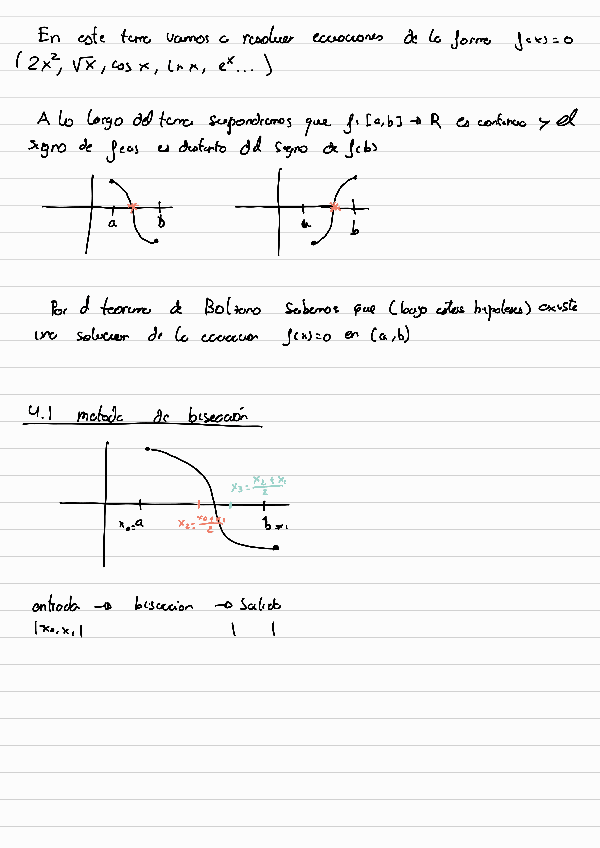 En este tema vamos a resolver ecuaciones de la forma f(x)=0
(2x², √x, cos x, ln x, eˣ...)
A lo largo del tema supondremos que f:[a,b]→R es continua y el
signo de f(a) es distinto del signo de f(b)
a b
a b
Por el teorema de Bolzano sabemos que (bajo estas hipotesis) existe
una solucion de la ecuacion f(x)=0 en (a,b)
4.1 metodo de bisección
x₃=(x₂+x₁)/2
x₀=a x₂=(x₀+x₁)/2 b=x₁
entrada → biseccion → Salida
|x₀,x₁| | |